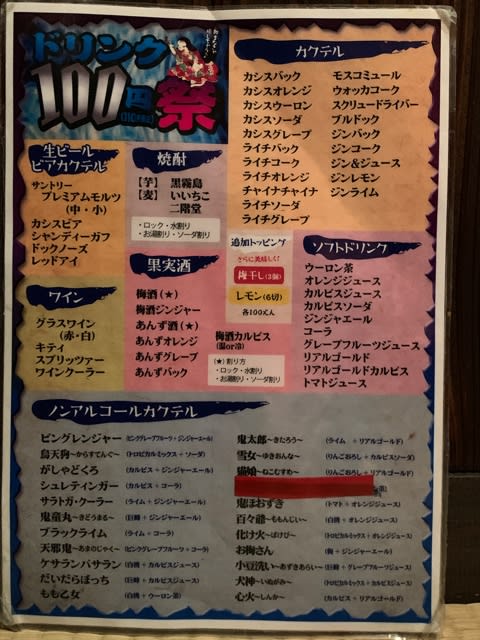 ドリンク
100円祭
カクテル
カシスバック
カシスオレンジ
カシスウーロン
カシスソーダ
カシスグレープ
ライチバック
ライチコーク
ライチオレンジ
チャイナチャイナ
ライチソーダ
ライチグレープ
モスコミュール
ウォッカコーク
スクリュードライバー
ブルドック
ジンバック
ジンコーク
ジン&ジュース
ジンレモン
ジンライム
生ビール
ビアカクテル
サントリー
プレミアムモルツ
(中・小)
カシスビア
シャンディーガフ
ドックノーズ
レッドアイ
焼酎
【芋】 黒霧島
【麦】 いいちこ
二階堂
・ロック・水割り
・お湯割り・ソーダ割り
果実酒
梅酒(★)
梅酒ジンジャー
あんず酒(★)
あんずオレンジ
あんずグレープ
あんずバック
梅酒カルピス
(温or冷)
(★)割り方
・ロック・水割り
・お湯割り・ソーダ割り
追加トッピング
さらに美味しく!
梅干し(3個)
レモン(6切)
各100えん
ソフトドリンク
ウーロン茶
オレンジジュース
カルピスジュース
カルピスソーダ
ジンジャエール
コーラ
グレープフルーツジュース
リアルゴールド
リアルゴールドカルピス
トマトジュース
ワイン
グラスワイン
(赤・白)
キティ
スプリッツァー
ワインクーラー
ノンアルコールカクテル
ピングレンジャー (ピングレープフルーツ+ジンジャーエール)
烏天狗~からすてんぐ~ (トロピカルミックス+ソーダ)
がしゃどくろ (カルピス+ジンジャーエール)
シュレティンガー (カルピス+コーラ)
サラトガ・クーラー (ライム+ジンジャーエール)
鬼童丸~きどうまる~ (巨峰+ジンジャーエール)
ブラックライム (ライム+コーラ)
天邪鬼~あまのじゃく~ (ピングレープフルーツ+コーラ)
ケサランパサラン (白桃+カルピスジュース)
だいだらぼっち (巨峰+カルピスジュース)
もも乙女 (白桃+ウーロン茶)
鬼太郎~きたろう~ (ライム+リアルゴールド)
雪女~ゆきおんな~ (りんごおろし+カルピスソーダ)
猫娘~ねこむすめ~ (りんごおろし+リアルゴールド)
茶)
鬼ほおずき (トマト+オレンジジュース)
百々爺~ももんじい~ (白桃+オレンジジュース)
化け火~ばけび~ (トロピカルミックス+オレンジジュース)
お梅さん (梅+ジンジャーエール)
小豆洗い~あずきあらい~ (巨峰+グレープフルーツジュース)
犬神~いぬがみ~ (トロピカルミックス+カルピスジュース)
心火~しんか~ (カルピス+リアルゴールド)